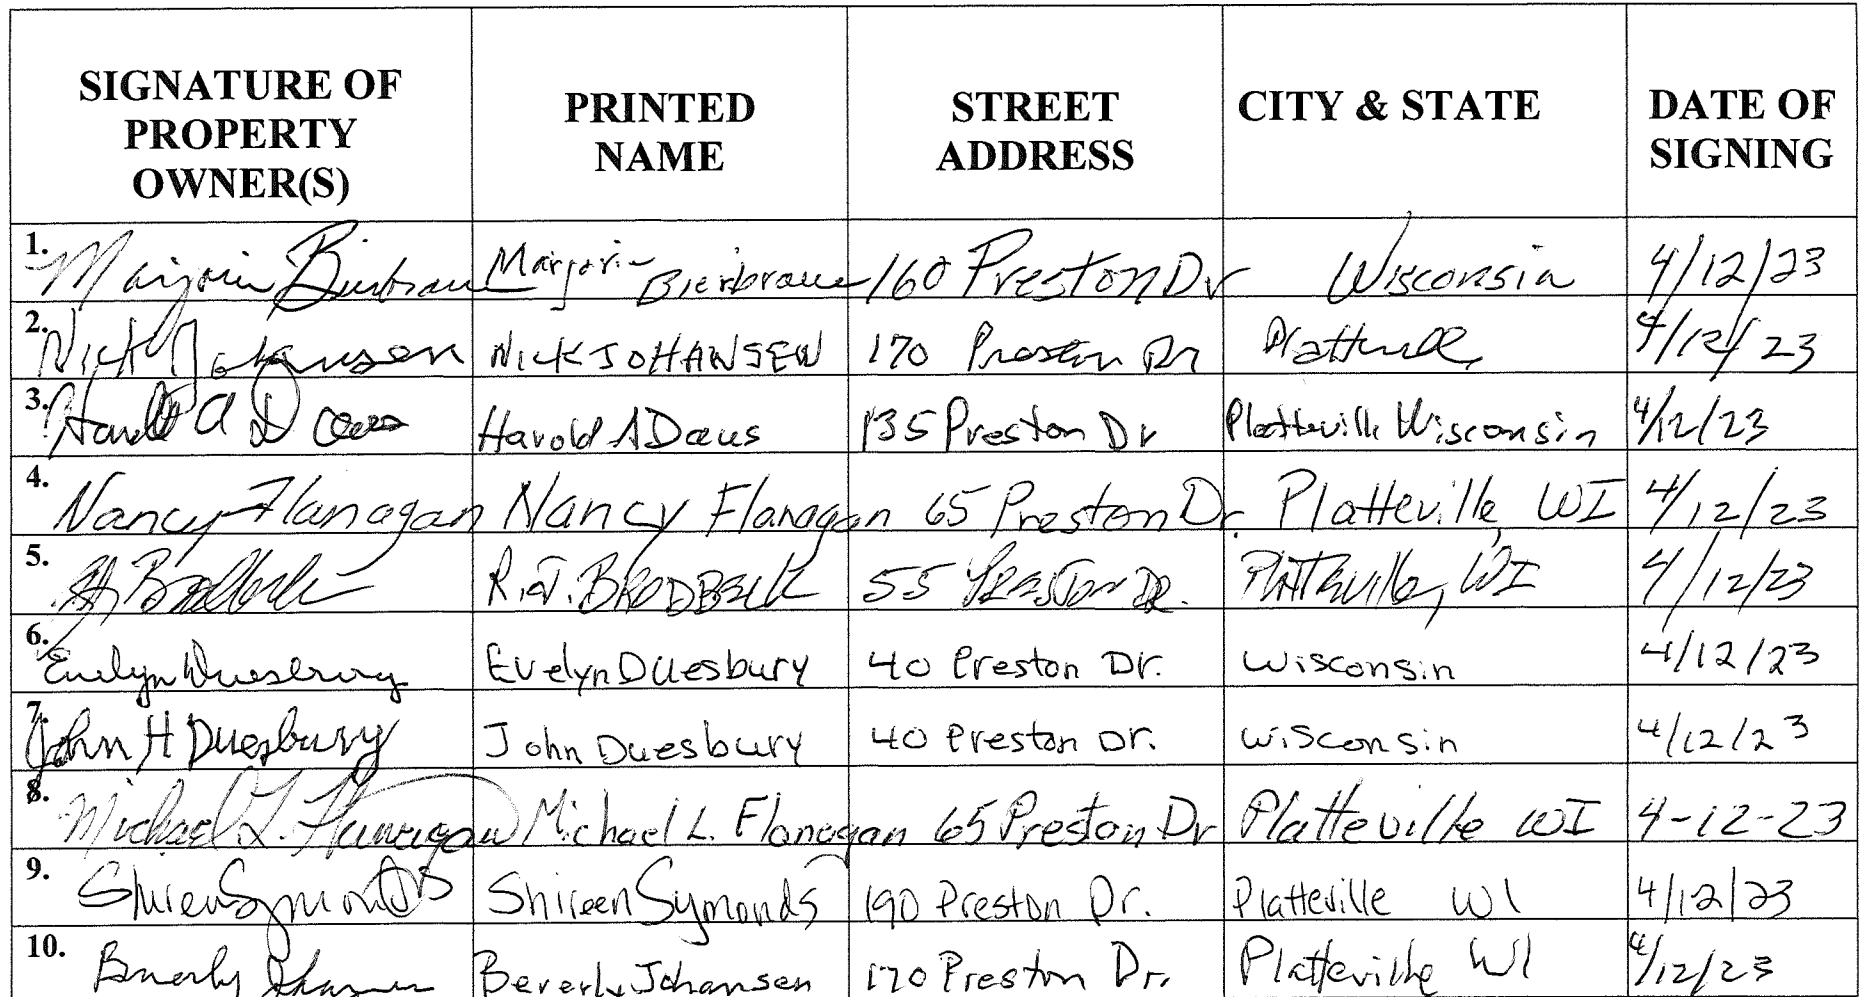 SIGNATURE OF PROPERTY OWNER(S) PRINTED NAME STREET ADDRESS CITY & STATE DATE OF SIGNING
1. Marjorie Bierbrauer Marjorie Bierbrauer 160 Preston Dr Wisconsin 4/12/23
2. Nick Johansen NICK JOHANSEN 170 Preston Dr Platteville 4/12/23
3. Harold A Daus Harold A Daus 135 Preston Dr Platteville Wisconsin 4/12/23
4. Nancy Flanagan Nancy Flanagan 65 Preston Dr. Platteville, WI 4/12/23
5. Brodbeck R.J. BRODBECK 55 PRESTON DR. PLATTEVILLE, WI 4/12/23
6. Evelyn Duesbury Evelyn Duesbury 40 Preston Dr. Wisconsin 4/12/23
7. John H Duesbury John Duesbury 40 Preston Dr. Wisconsin 4/12/23
8. Michael L. Flanagan Michael L. Flanagan 65 Preston Dr Platteville WI 4-12-23
9. Shireen Symonds Shireen Symonds 190 Preston Dr. Platteville WI 4/12/23
10. Beverly Johansen Beverly Johansen 170 Preston Dr. Platteville WI 4/12/23